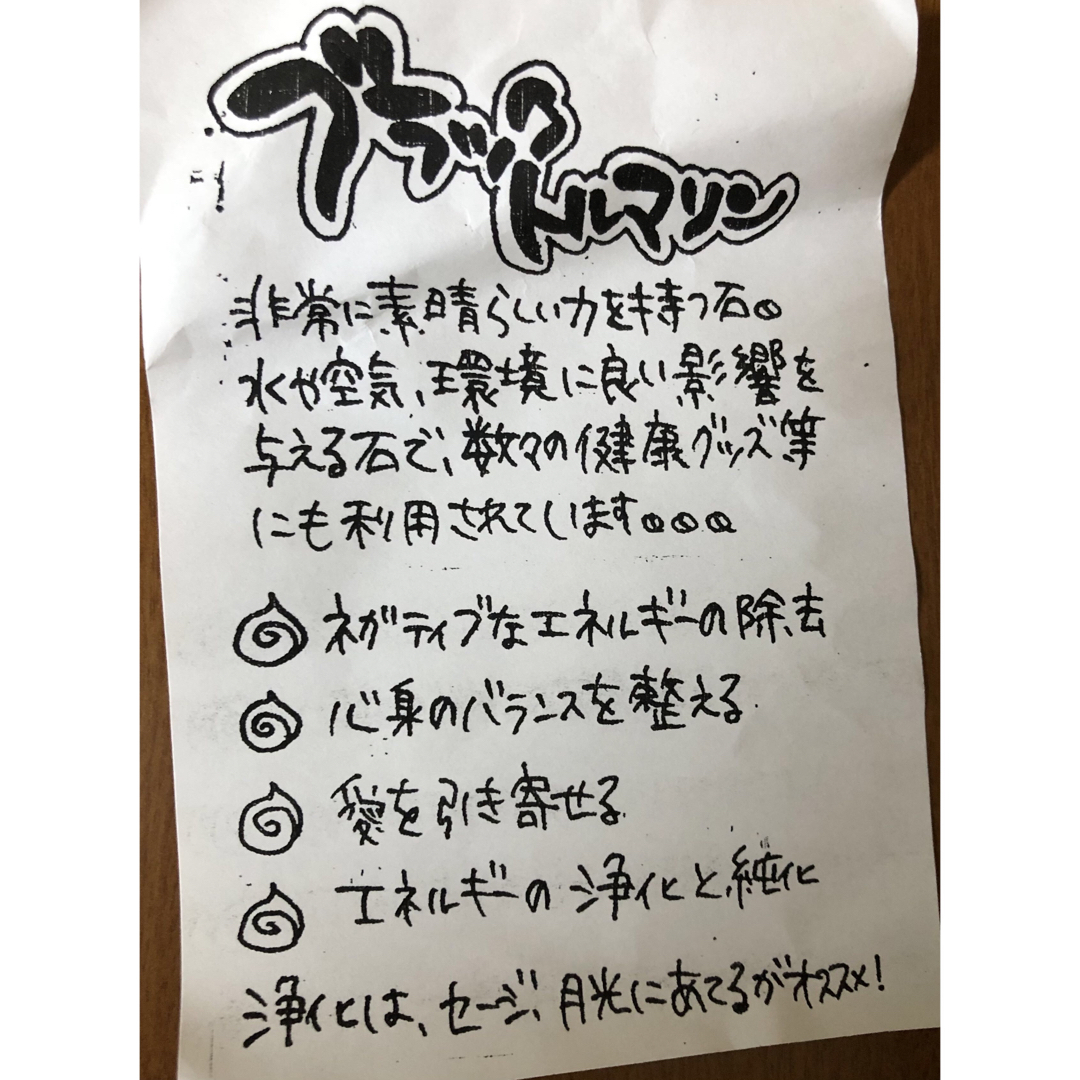 ブラック
トルマリン
非常に素晴らしい力を持つ石。
水や空気、環境に良い影響を
与える石で、数々の健康グッズ等
にも利用されています。。。
ネガティブなエネルギーの除去
心身のバランスを整える
愛を引き寄せる
エネルギーの浄化と純化
浄化は、セージ、月光にあてるがオススメ!